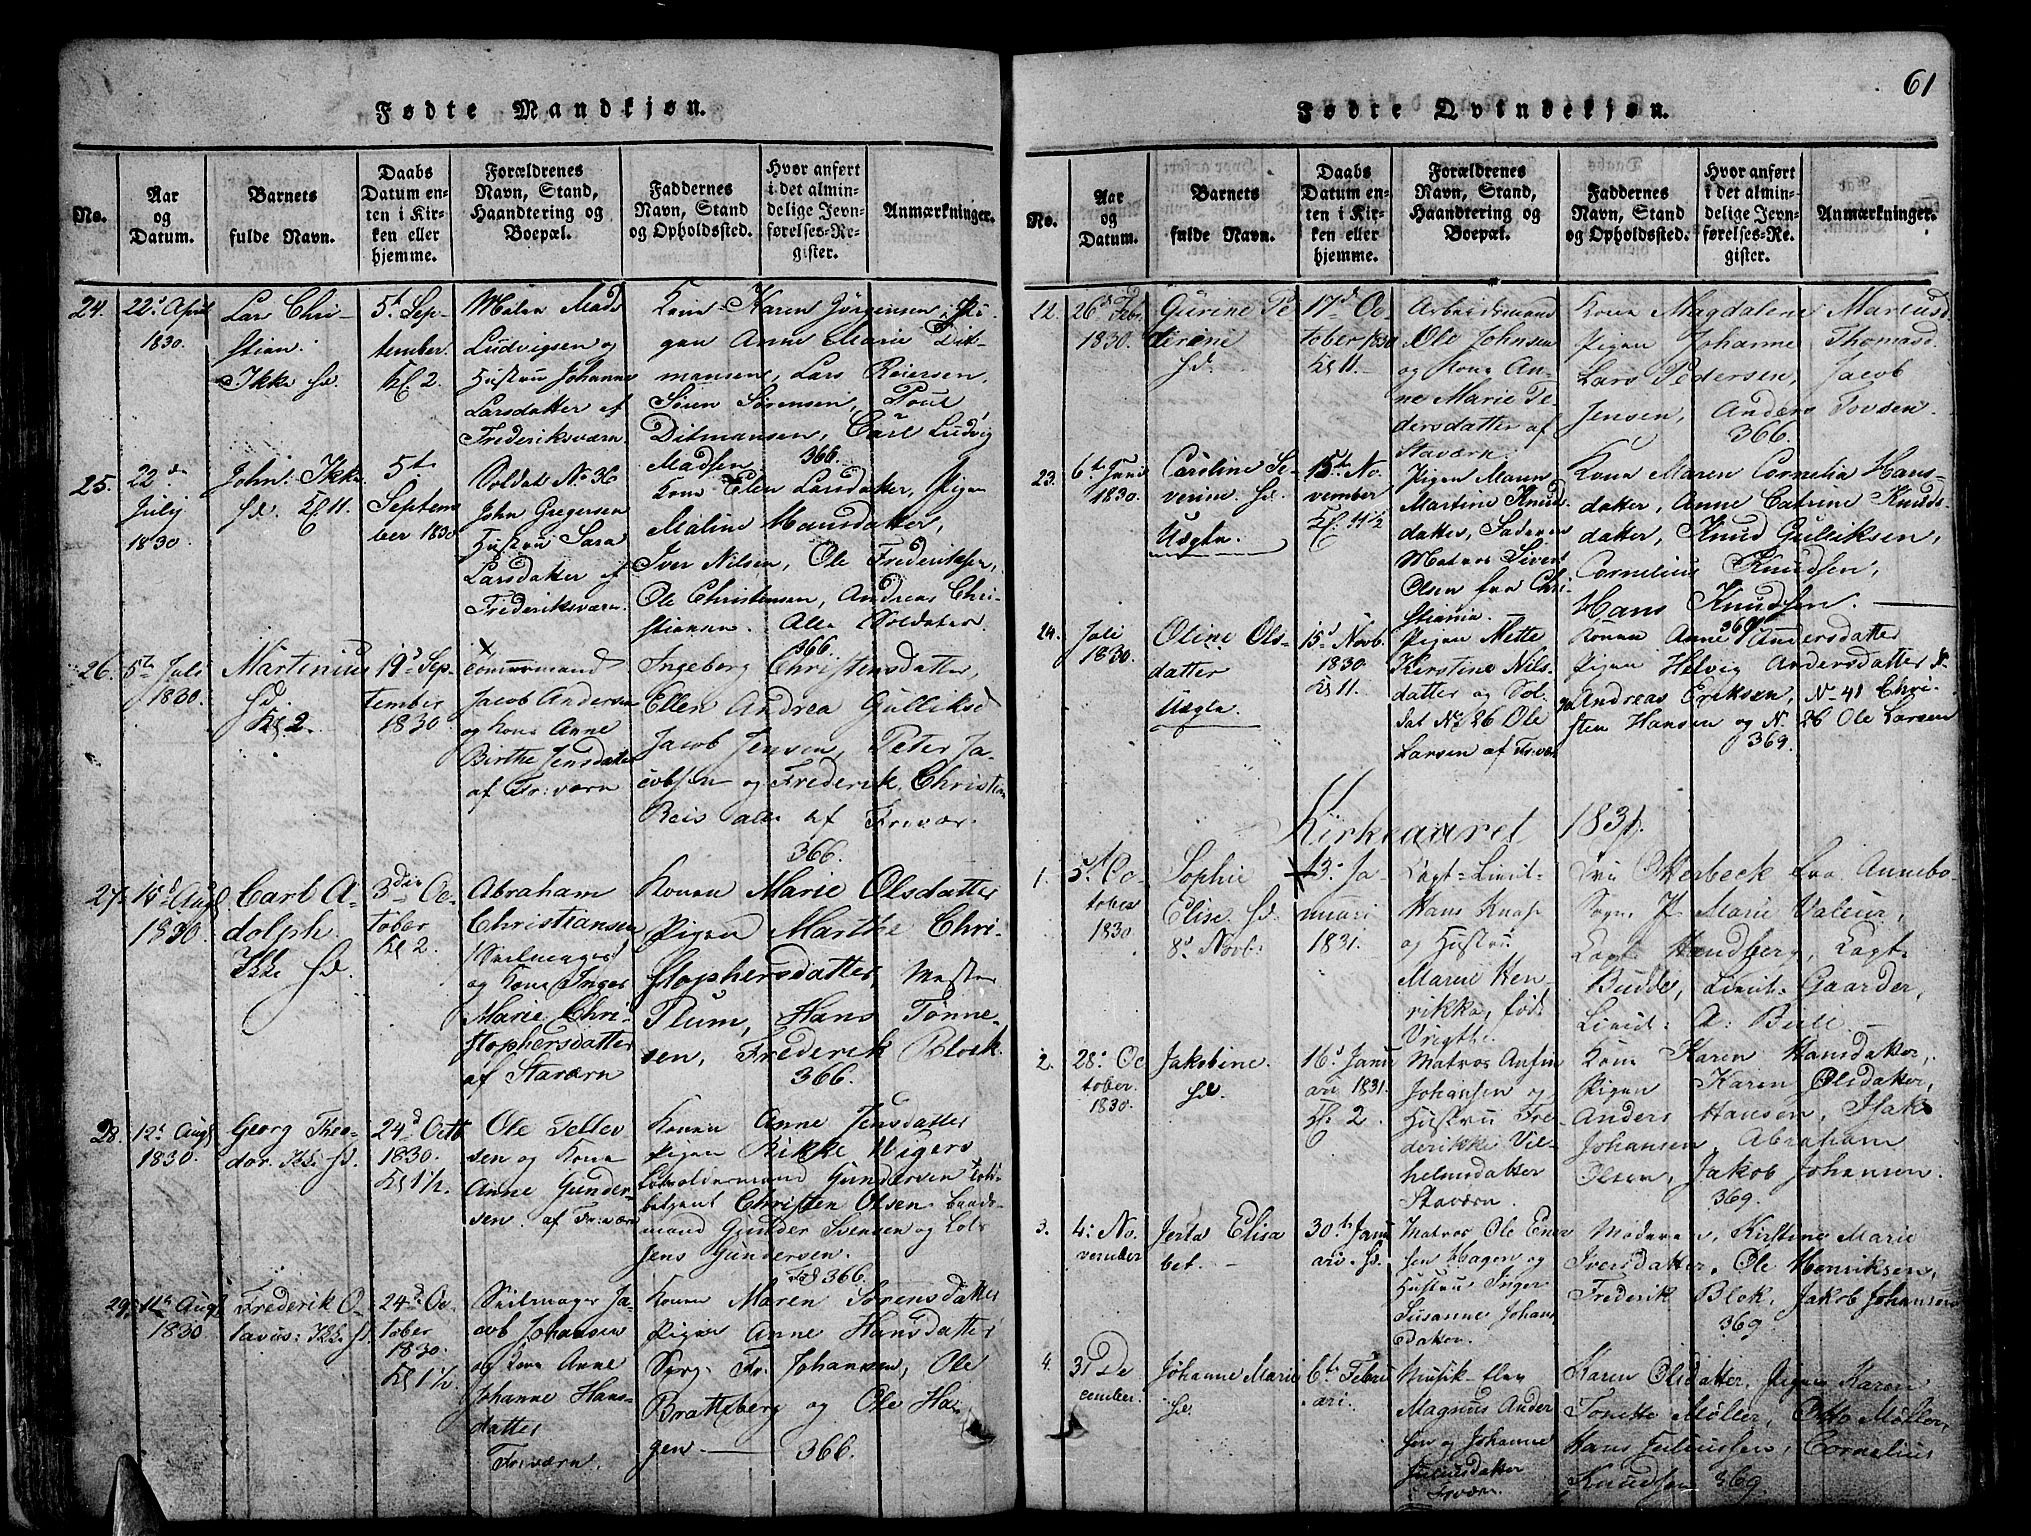 61
Fødte Mandkjøn.
No.
Aar
og
Datum.
Barnets
fulde Navn.
Daabs
Datum en-
ten i Kir-
ken eller
hjemme.
Forældrenes
Navn, Stand,
Haandtering og
Boepæl.
Faddernes
Navn, Stand
og Opholdssted.
Hvor anført
i det almin-
delige Jevn-
førelses-Re-
gister.
Anmærkninger.
24.
22d April
1830.
Lars Chri-
stian.
Ikke hd.
5t Sep-
tember.
Kl 2.
Mads
Ludvigsen og
Hustru Johanne
Larsdatter af
Frederiksværn
Kone Karen Jörgensen, Pi-
gen Anne Marie Dit-
mansens, Lars Reiersen,
Sören Sörensen, Poul
Ditmansen, Carl Ludvig
Madsen. 366.
25.
22de
July
1830
John. Ikke
hd. Kl 11.
5te
Septem
ber 1830
Soldat No 36
John Gregersen
Hustru Sara
Larsdatter af
Frederiksværn.
Kone Elen Larsdatter, Pigen
Maline Hansdatter,
Iver Nilsen, Ole Frederiksen,
Ole Christensen, Andreas Chri-
stiansen. Alle Soldater.
366
26.
5te Juli
1830.
Martinius
hd.
Kl 2.
19d Sep-
tember
1830
Jacob Andersen
og Kone Anne
Birthe Jensdatter
af Fr:værn
Ingeborg Christensdatter,
Ellen Andrea Gulliksd
Jacob Jensen, Peter Ja-
cobsen og Frederik Christian
Reis alle af Fr:vær.
366.
27.
15d Aug
1830.
Carl A-
dolph.
Ikke hd.
3die Oc-
tober
Kl 2.
Abraham
Christiansen
Seilmager
og Kone Inger
Marie Chri-
stophersdatter
af Staværn
Konen Marie Olsdatter
Pigen Marthe Chri-
stophersdatter, Mester
Plum, Hans Tønne-
sen, Frederik Block
366.
28.
12d Aug
1830.
Georg Theo-
dor. Ikke hd.
24d Octb
1830.
Kl 1½.
Ole Tellev-
sen og Kone
Anne Gunder-
sen. af Fr:værn
Konen Anne Jensdatter
Pigen Rikke Wigers
Gundersen
Christen Olsen
mand Gunder Svensen og Lods
Jens Gundersen.
366.
29.
11te Aug
1830
Frederik O-
tavus: Ikke hd.
24d Oc-
tober
1830.
Kl 1½
Seilmager Ja-
cob Johansen
og Kone Anne
Johanne Hans-
datter
Fr:værn.
Konen Maren Sørensdatter
Pigen Anne Hansdatter
Serg. Fr. Johansen, Ole
Brattsberg og Ole Ha-
gen 366.
Fødte Qvindekjøn.
No.
Aar
og
Datum.
Barnets
fulde Navn.
Daabs
Datum en-
ten i Kir-
ken eller
hjemme.
Forældrenes
Navn, Stand,
Haandtering og
Boepæl.
Faddernes
Navn, Stand
og Opholdssted.
Hvor anført
i det almin-
delige Jevn-
førelses-Re-
gister.
Anmærkninger.
22.
26d Feb
1830.
Gurine Pe
terine
hd.
17d Oc-
tober 1830
Kl 11.
Arbeidsmand
Ole Johnsen
og Kone An-
ne Marie Pe-
dersdatter af
Staværn.
Kone Magdalene Mariusd.
Pigen Johanne Thomasd.
Lars Pedersen, Jacob
Jensen, Anders Tovsen.
366.
23.
6te Juni
1830.
Caroline Se-
verine hd.
Uægte.
15te No-
vember
Kl. 11½
Pigen Maren
Martine Knud
datter, Faderen
Matros Sivert
Olsen fra Chri-
stiania.
Kone Maren Cornelia Hans-
datter, Anne Catrine Knuds-
datter, Knud Gulliksen,
Cornelius Knudsen,
Hans Knudsen.
369
24.
Juli
1830.
Oline Ols-
datter
Uægte.
15d Novb.
1830
Kl 11.
Pigen Mette
Kirstine Nils-
datter og Sol-
dat No 26 Ole
Larsen af Fr:vær
Konen Anne Andersdatter
Pigen Helvig Andersdatter N
20 Andreas Eriksen, No 41 Chri-
sten Hansen og N. 26 Ole Larsen
369.
Kirkeaaret 1831.
1.
5t Oc-
tober
1830
Sophie
Elise hd.
8d Novb:
13d Ja
nuari
1831.
Capt-Lieut-
Hans Knap
og Hustru
Maren Hen-
rikke, född
Vrigth.
Fru Otterbeck fra Annebo-
Sogn, J. Marie Valeur,
Capt Handberg, Capt.
Budde, Lieut: Gaarder,
Lieut: A: Bull.
2.
28d Oc
tober.
1830.
Jakobine.
hd.
16d Janu
ari 1831.
Kl. 2
Matros Anfin
Johansen og
Hustru Fre-
derikke Vil-
helmsdatter
Staværn
Kone Karen Hansdatter,
Pigen Karen Olsdatter,
Anders Hansen, Isak
Johansen, Abraham
Olsen, Jakob Johansen.
369.
3.
4d No-
vember
Jerta Elisa
bet.
30te Janu
ari. hd.
Matros Ole Ener
sen Hagen og
Hustru Inger
Susanne Johans
datter.
Moderen, Kirstine Marie
Iversdatter, Ole Henriksen,
Frederik Blok, Jakob Johansen
369
4.
31 De
cember.
Johanne Marie
hd.
6te Febru
ari.
Musik-elev
Magnus Ander
sen og Johanne
Juliusdatter
Fr.værn.
Karen Olsdatter, Pigen Karen
Tonette Møller, Otto Møller,
Hans Juliussen, Cornelius
Knudsen 369.